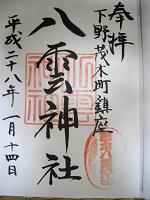 奉拝
下野茂木町鎮座
八雲神社
平成二十八年一月十四日